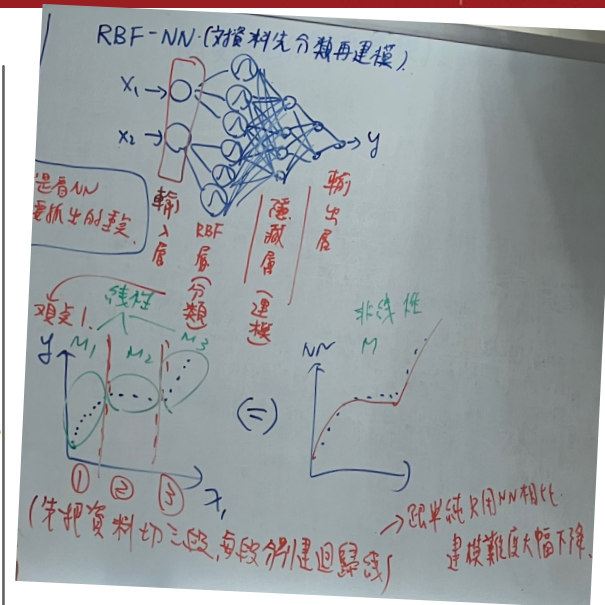 RBF-NN.(対資料先分類再建模).
X₁
X₂
y
是看NN
要抓出的
輸入層
RBF層(分類)
隱藏層(建模)
輸出層
1.
线性
M₁
M₂
M₃
y
① ② ③
X₁
(=)
非线性
NN
M
(先把資料切三段,每段分別建迴歸线)
→跟単純只用NN相比
建模難度大幅下降.